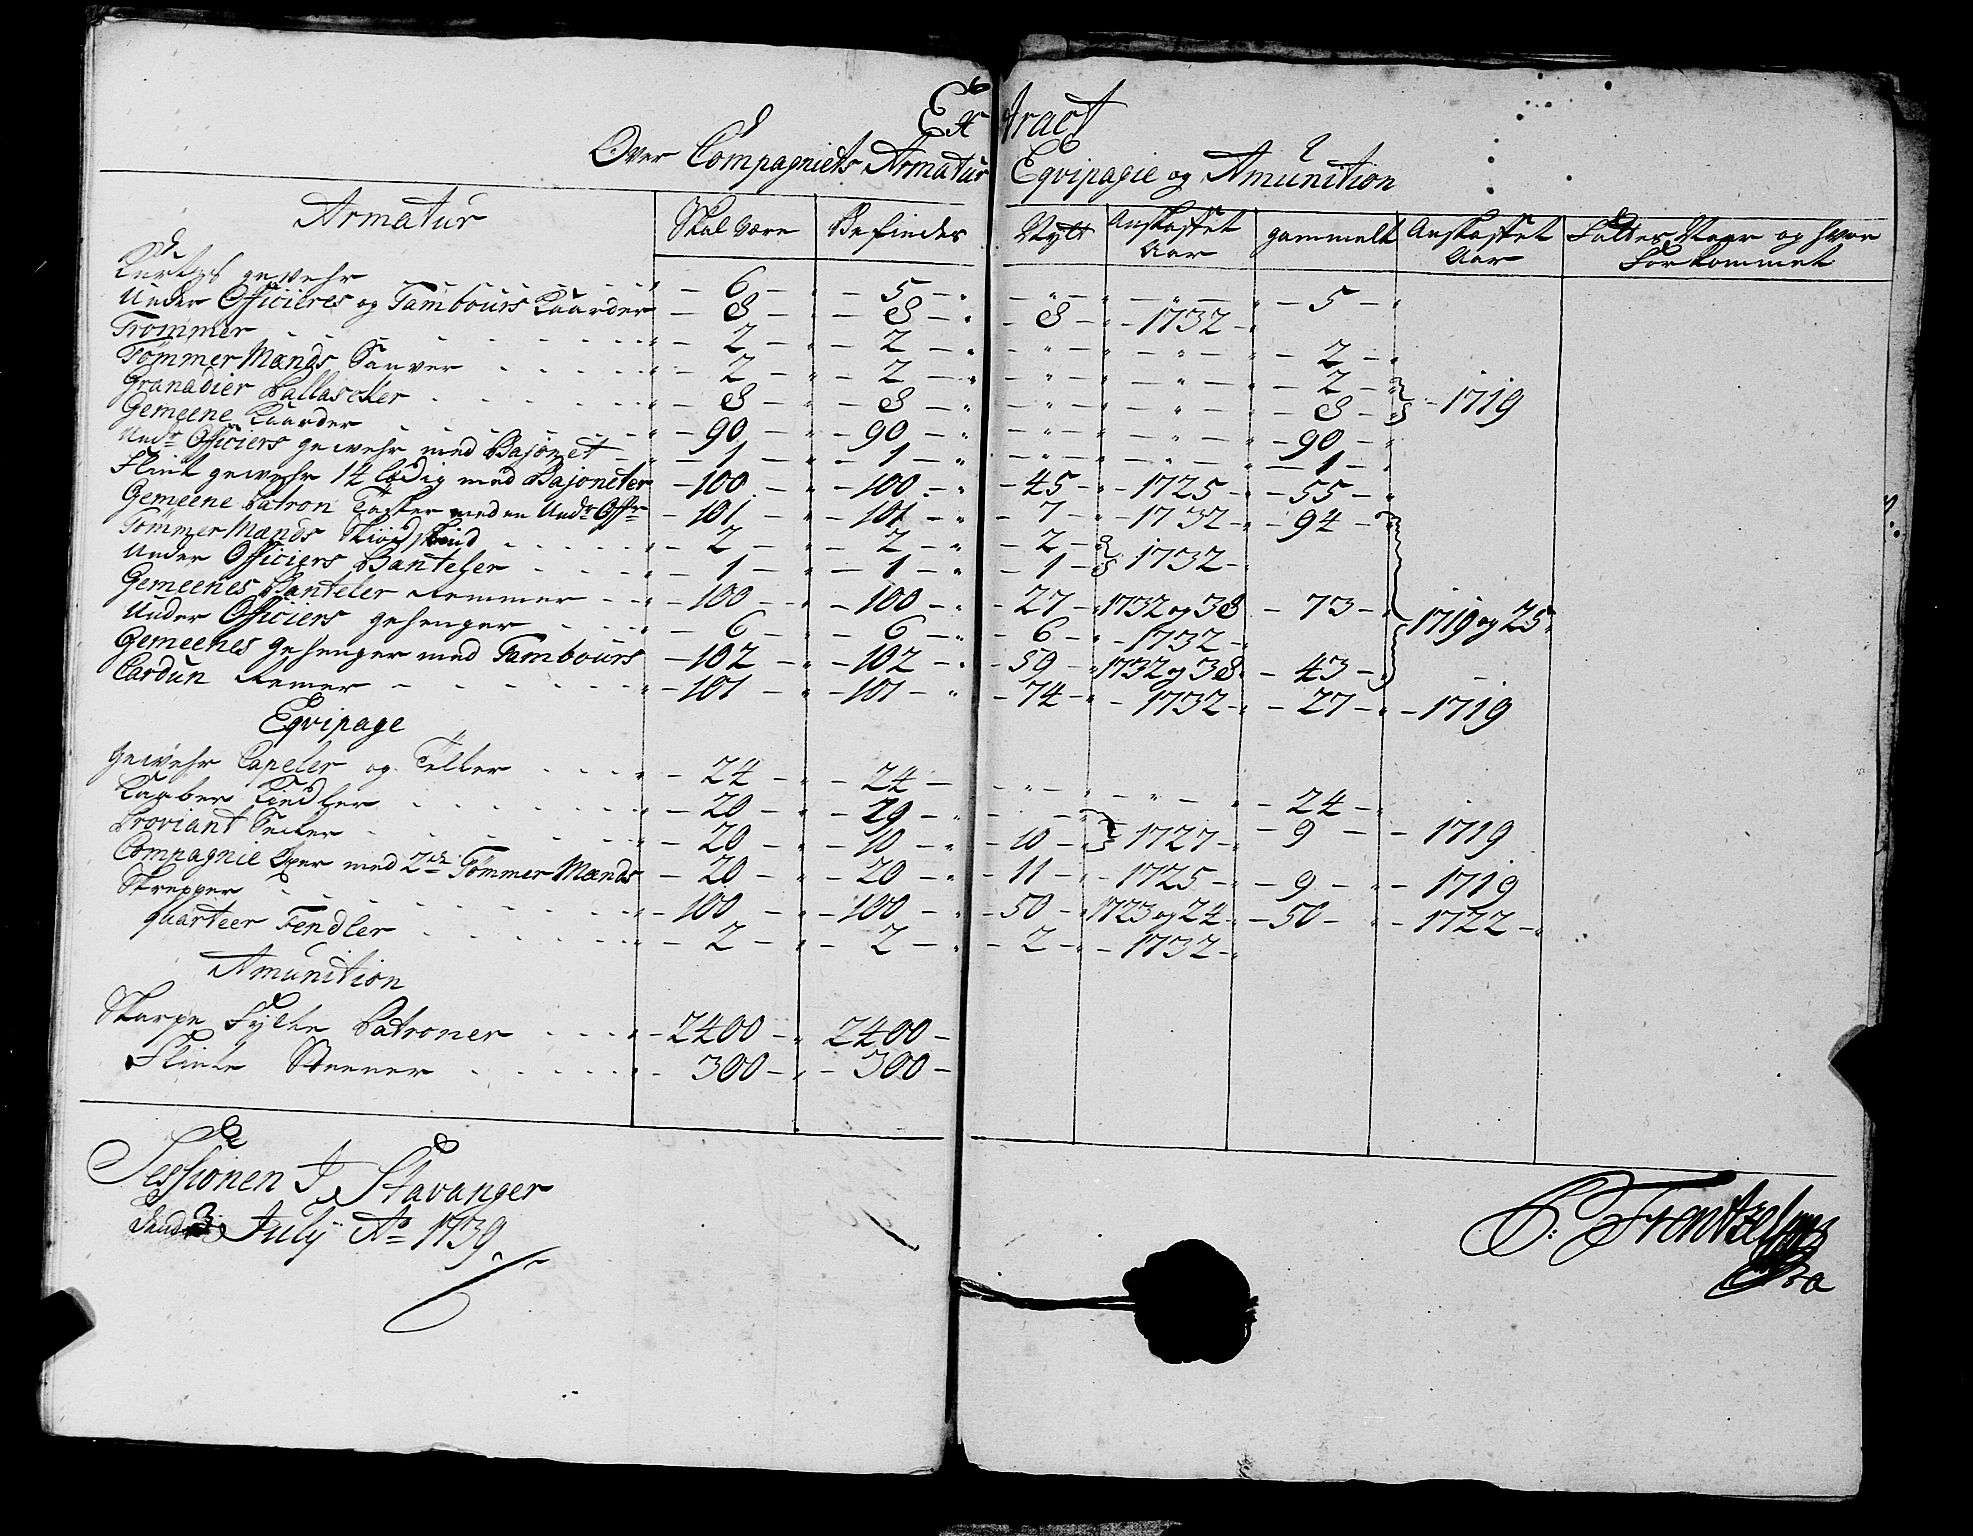 Extract
Over Compagniets Armatur Eqvipagie og Amunition
Armatur | Skal være | Befindes | Nytt | Anskaffet Aar | gammelt | Anskaffet Aar | Fattes Naar og hvor forkommet
Kurtz gewehr | 6 | 5 | " | " | 5
Under Officieres og Tambours Kaarder | 8 | 8 | 8 | 1732
Trommer | 2 | 2 | " | " | 2
Tømmer Mænds Sauver | 2 | 2 | " | " | 2
Granadier Pallascher | 8 | 8 | " | " | 8 | 1719
Gemeene Kaarder | 90 | 90 | " | " | 90
Undr Officiers gewehr med Bajonet | 1 | 1 | " | " | 1
Flint gewehr 14 lødig med Bajoneter | 100 | 100 | 45 | 1725 | 55
Gemeene Patron Tasker med en Undr Offr | 101 | 101 | 7 | 1732 | 94
Tømmer Mænds Skiødskind | 2 | 2 | 2
Under Officiers Banteler | 1 | 1 | 1 | 1732
Gemeenes Banteler Remmer | 100 | 100 | 27 | 1732 og 38 | 73 | 1719 og 25
Under Officiers gehenger | 6 | 6 | 6 | 1732
Gemeenes gehenger med Tambours | 102 | 102 | 59 | 1732 og 38 | 43
Cardun Remer | 101 | 101 | 74 | 1732 | 27 | 1719
Eqvipage
gewehr Capeler og Telter | 24 | 24 | " | " | 24
Kaaber Kiedler | 20 | 19 | 9 | 1719
Proviant Secker | 20 | 10 | 10 | 1727
Compagnie Øxer med 2de Tømmer Mænds | 20 | 20 | 11 | 1725 | 9 | 1719
Skrepper | 100 | 100 | 50 | 1723 og 24 | 50 | 1722
quarteer Fendler | 2 | 2 | 2 | 1732
Amunition
Skarpe Fylte Patroner | 2400 | 2400
Flinte Steener | 300 | 300
Sessionen I Stavanger
3 July Ao 1739